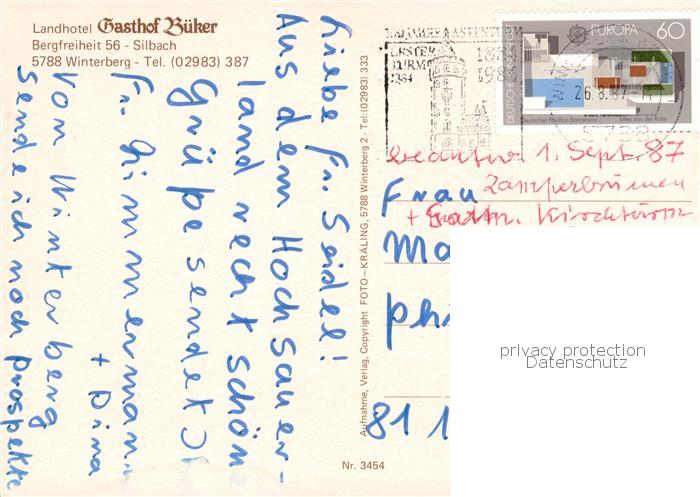 Landhotel Gasthof Büker
Bergfreiheit 56 - Silbach
5788 Winterberg - Tel. (02983) 387
Liebe Fr. Seidel!
Aus dem Hochsauer-
land recht schön
Grüße sendet
Fr. Zimmermann
+ Dina
Vom Winterberg
sende ich noch Prospekte
Aufnahme, Verlag, Copyright FOTO-KRÄLING, 5788 Winterberg 2 - Tel: (02983) 333
Nr. 3454
100 JAHRE ASTENTURM
ERSTER
TURM
1884
1884
1984
DEUTSCHE BUNDESPOST
EUROPA 60
Deutscher Pavillon Barcelona Mies van der Rohe
26.8.87
5788
beantw. 1. Sept. 87
Frau
+ Kirchturm
Ma
phi
81 1
privacy protection
Datenschutz